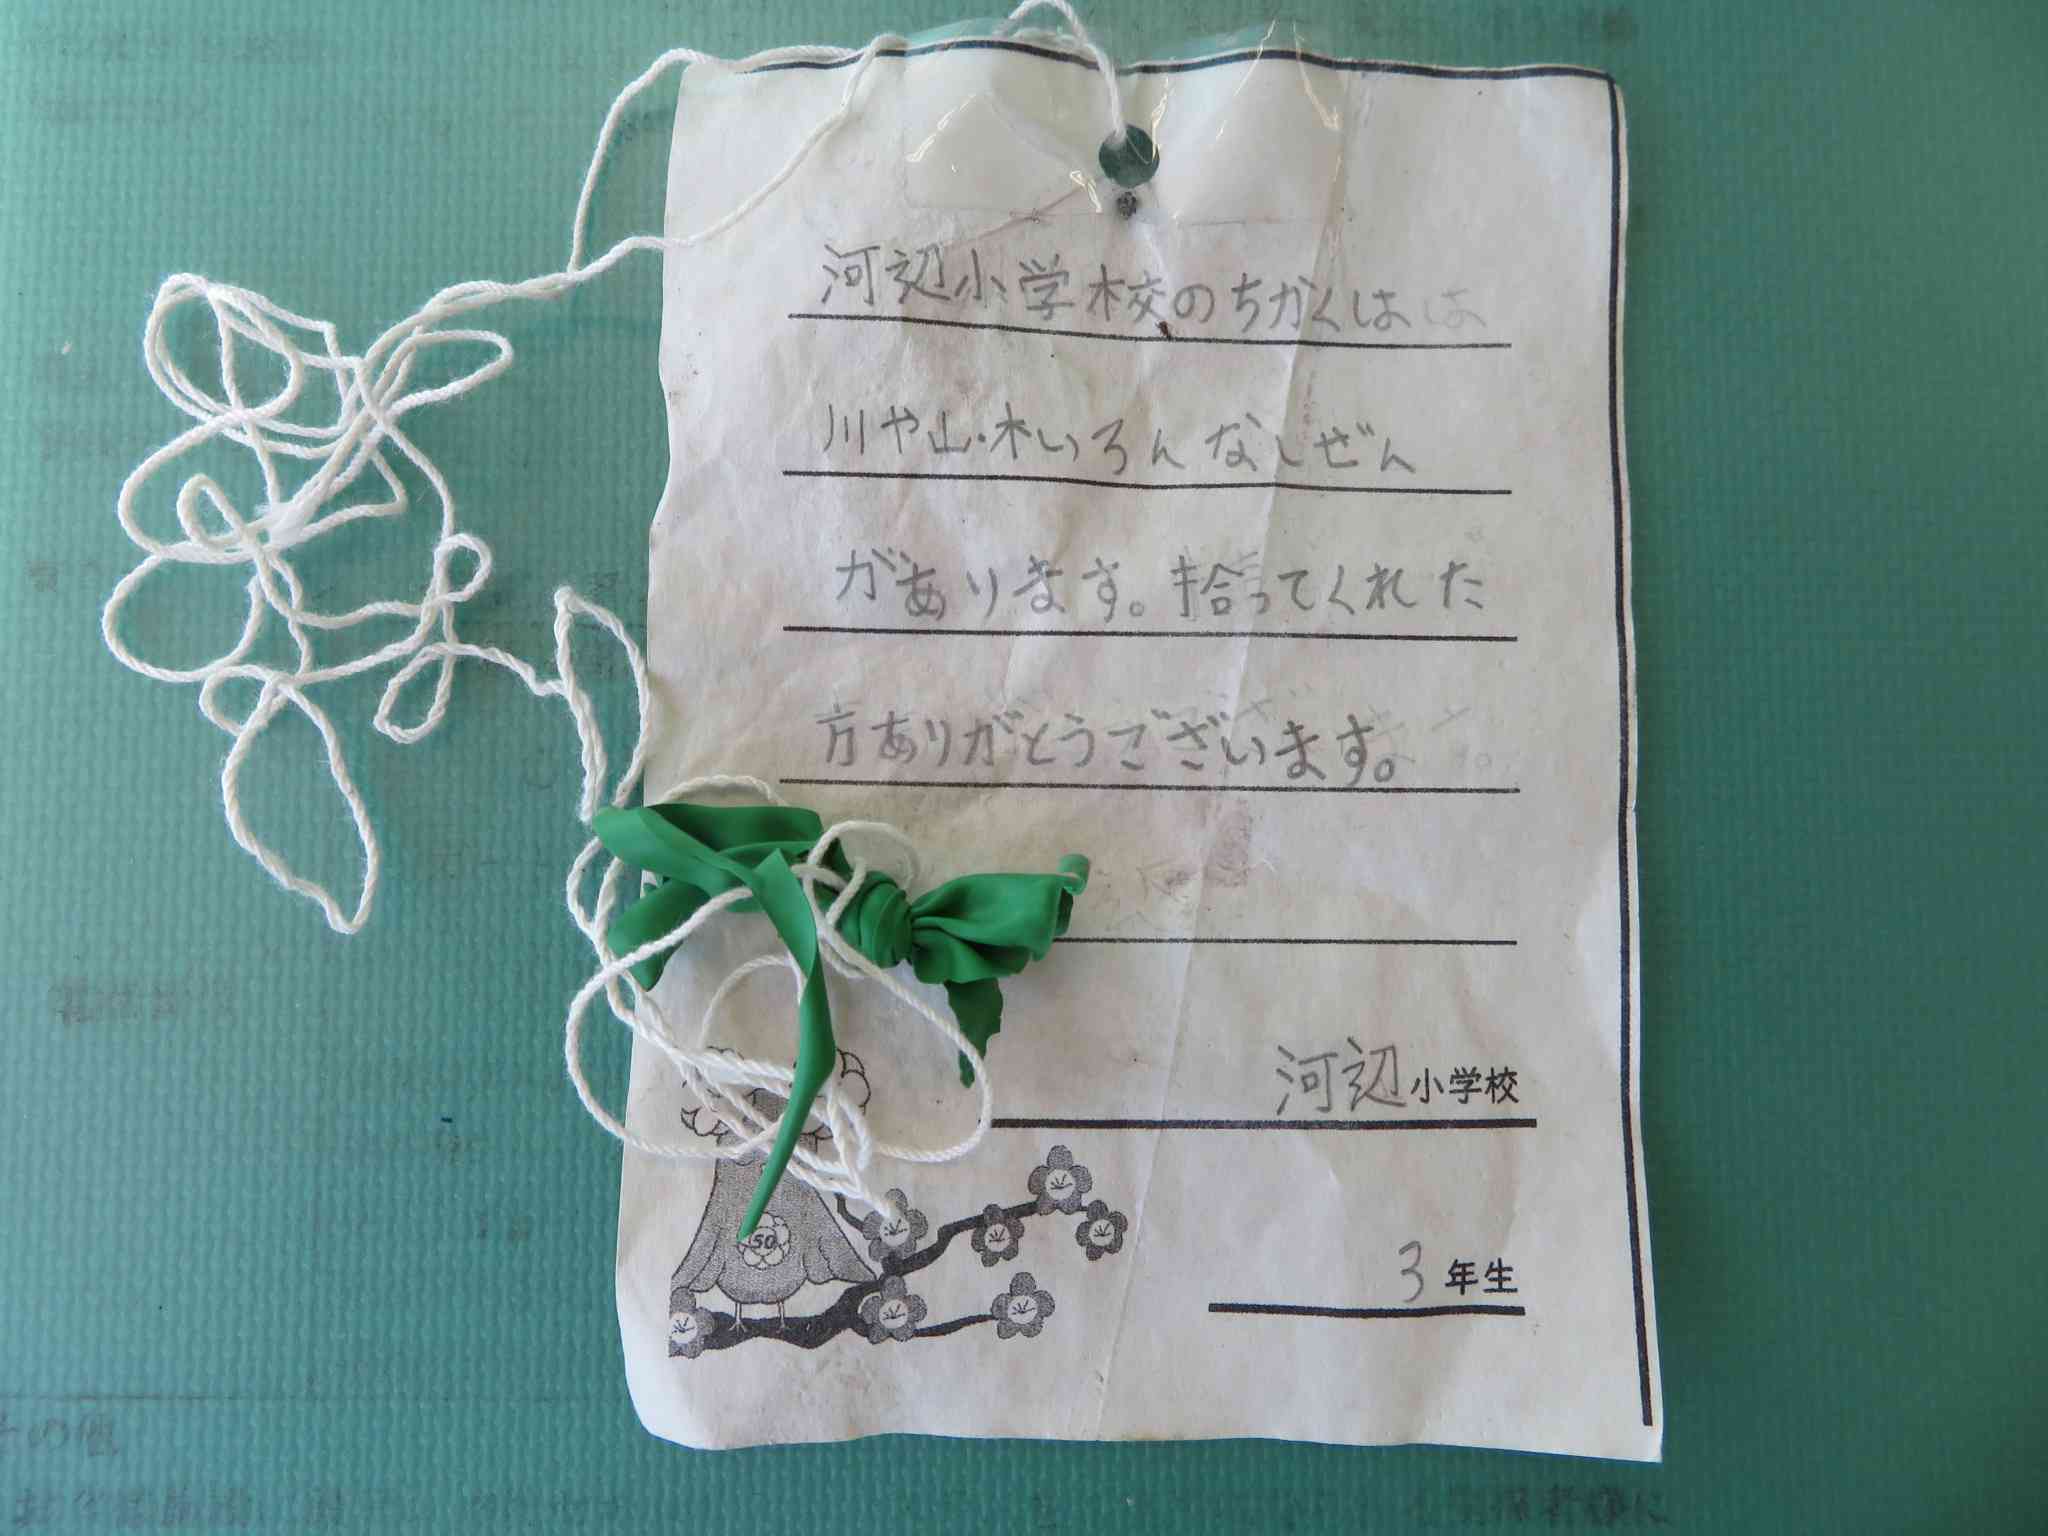 河辺小学校のちかくは
川や山・木いろんなしぜん
があります。拾ってくれた
方ありがとうございます。
河辺小学校
50
3年生